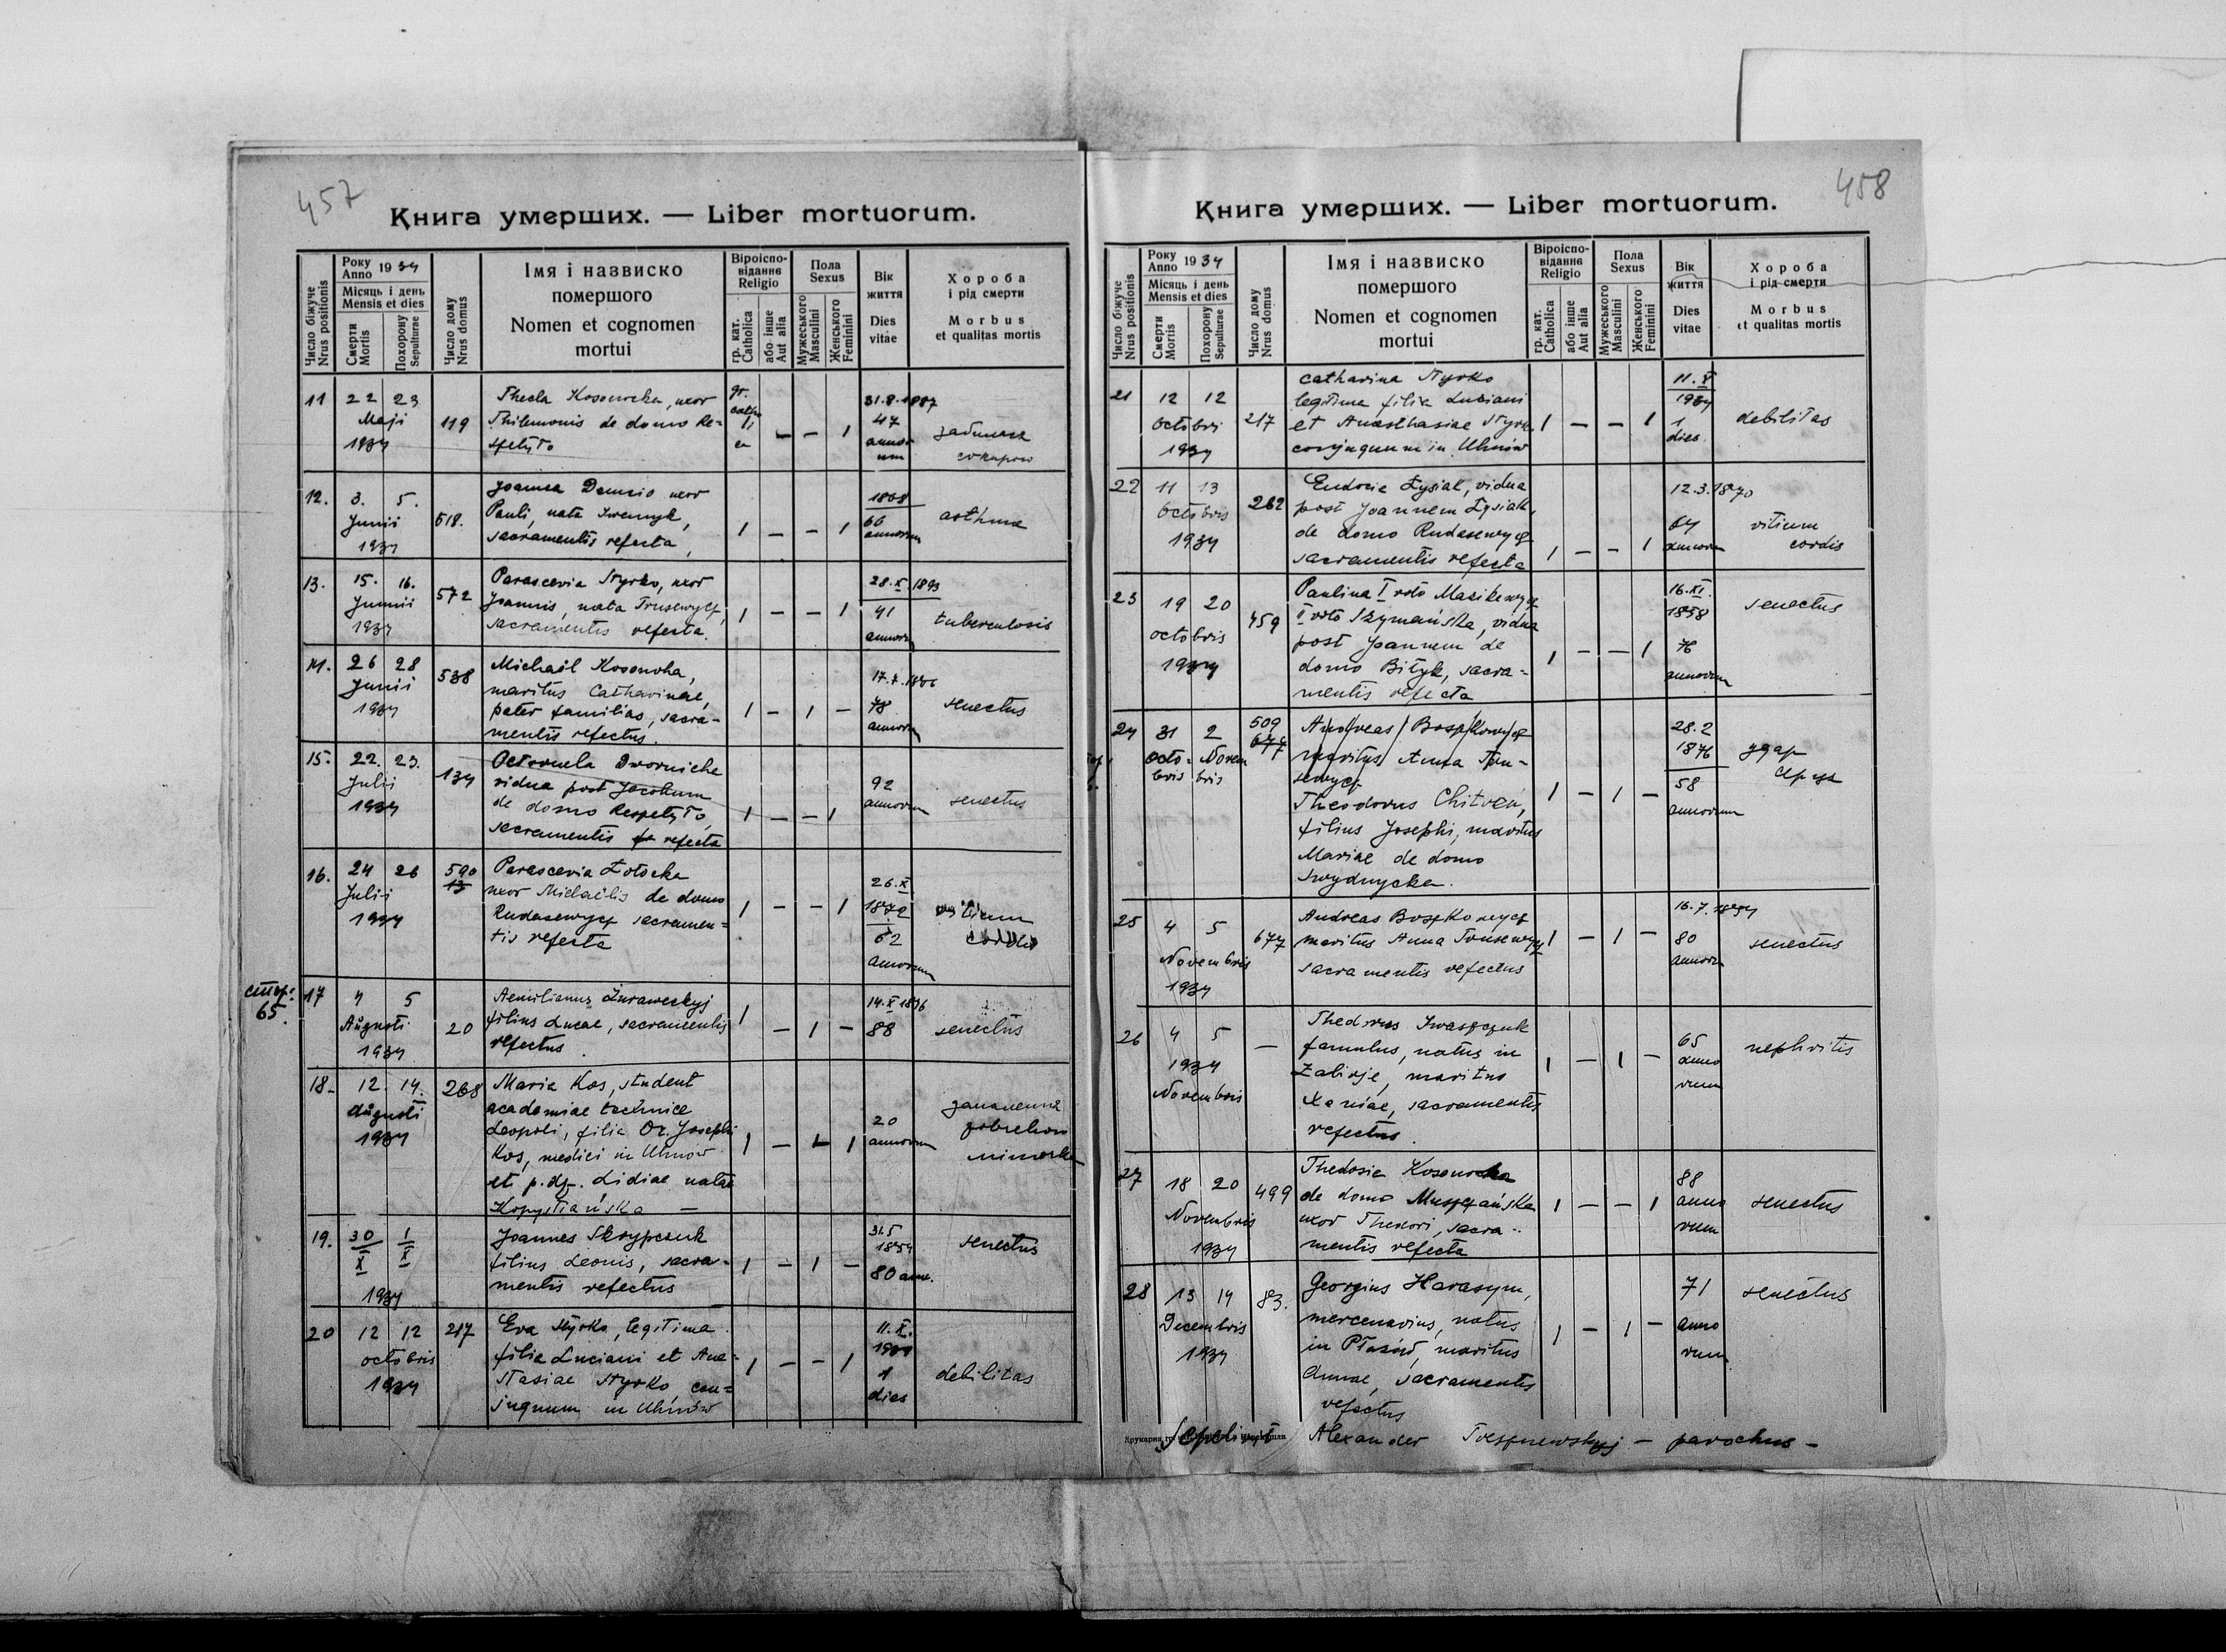 457
Книга умерших. — Liber mortuorum.
Число біжуче
Nrus positionis
Року
Anno 1934
Місяць і день
Mensis et dies
Смерти
Mortis
Похорону
Sepulturae
Число дому
Nrus domus
Імя і назвиско
помершого
Nomen et cognomen
mortui
Віроіспо-
віданнє
Religio
гр. кат.
Catholica
або інше
Aut alia
Пола
Sexus
Мужеського
Masculini
Женського
Feminini
Вік
життя
Dies
vitae
Хороба
і рід смерти
Morbus
et qualitas mortis
11 22 23 Maji 1934 119
Thecla Kosonocka, uxor
Philemonis de domo Re-
spelyto
gr. catholica — — 1
31.8.1887
47
annorum
12. 3. 5. Junii 1934 518.
Joanna Demcio uxor
Pauli, nata Iwemyk,
sacramentis refecta,
1 — — 1
1868
66
annorum
asthma
13. 15. 16. Junii 1934 572
Parascevia Styrko, uxor
Joannis, nata Trusewycz,
sacramentis refecta.
1 — — 1
28.X.1893
41
annorum
tuberculosis
14. 26 28 Junii 1934 538
Michaël Kosonoha,
maritus Catharinae,
pater familias, sacra-
mentis refectus.
1 — 1 —
78
annorum
senectus
15. 22. 23. Julii 1934 134
Dwornicka
vidua post Jacobum
de domo Respelyto,
sacramentis refecta
1 — — 1
92
annorum
senectus
16. 24 26 Julii 1934 590
13
Parascevia Łotocka
uxor Michaëlis de domo
Rudasewycz sacramen-
tis refecta
1 — — 1
26.X
1872
62
annorum
vitium
cordis
стор.
65.
17 4 5 Augusti 1934 20
Aemilianus Żuraweckyj
filius Lucae, sacramentis
refectus.
1 — 1 —
14.X 1846
88
senectus
18. 12. 14. Augusti 1934 268
Maria Kos, student
academiae technice
Leopoli, filia Dr. Josephi
Kos, medici in Uhnów
et p. dz. Lidiae natae
Kopystiańska —
1 — — 1
20
annorum
запалення
19. 30/X 1/X 1934
Joannes Skrypczuk
filius Leonis, sacra-
mentis refectus —
1 — 1 —
31.5
1854
80 ann.
senectus
20 12 12 octobris 1934 217
Eva Styrko, legitima
filia Luciani et Ana-
stasiae Styrko, con-
jugum in Uhnów
1 — — 1
11.X.
1934
1
dies
debilitas
458
Книга умерших. — Liber mortuorum.
Число біжуче
Nrus positionis
Року
Anno 1934
Місяць і день
Mensis et dies
Смерти
Mortis
Похорону
Sepulturae
Число дому
Nrus domus
Імя і назвиско
помершого
Nomen et cognomen
mortui
Віроіспо-
віданнє
Religio
гр. кат.
Catholica
або інше
Aut alia
Пола
Sexus
Мужеського
Masculini
Женського
Feminini
Вік
життя
Dies
vitae
Хороба
і рід смерти
Morbus
et qualitas mortis
21 12 12 octobri 1934 217
Catharina Styrko
legitima filia Luciani
et Anasthasiae Styrko
conjugum in Uhnów
1 — — 1
11.X
1934
1
dies.
debilitas
22 11 13 octobris 1934 262
Eudocia Łysiak, vidua
post Joannem Łysiak,
de domo Rudasewycz
sacramentis refecta
1 — — 1
12.3.1870
64
annorum
vitium
cordis
23 19 20 octobris 1934 459
Paulina I voto Masikewycz
II voto Szymańska, vidua
post Joannem de
domo Bityk, sacra-
mentis refecta
1 — — 1
16.XI.
1858
76
annorum
senectus
24 31 2 octobris Novembris
509
677
Andreas Boszkowycz
maritus Anna Tru-
sewycz
Theodorus Chitreń,
filius Josephi, maritus
Mariae de domo
Swydnycka.
1 — 1 —
28.2
1876
58
annorum
удар
серця
25 4 5 Novembris 1934 677
Andreas Boszkowycz
maritus Anna Trusewycz
sacramentis refectus
1 — 1 —
16.7.1854
80
annorum
senectus
26 4 5 1934 Novembris —
Thedorus Iwaszczuk
famulus, natus in
Zalisje, maritus
Xeniae, sacramentis
refectus.
1 — 1 —
65
anno
rum
nephritis
27 18 20 Novembris 1934 499
Thedosia Kosonocka
de domo Muszczańska
uxor Theodori, sacra-
mentis refecta
1 — — 1
88
anno
rum
senectus
28 13 14 Decembris 1934 83.
Georgius Harasym,
mercenarius, natus
in Płazów, maritus
Annae, sacramentis
refectus
1 — 1 —
71
anno
rum
senectus
Sepelivit Alexander Treszniewskyj — parochus —